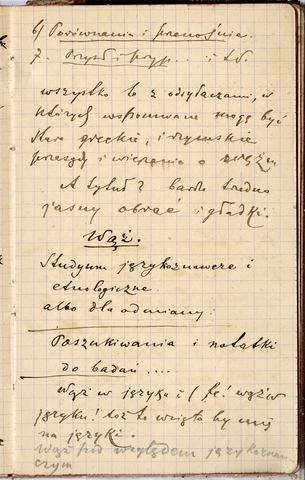 6) Porównania i przenośnie.
7. Przysł. i przyp... i t.d.
wszystko to z odsyłaczami, w
których wspomniane mogą być
stare greckie, i rzymskie
przesądy i wierzenia o wężu.
A tytuł? bardzo trudno
jasny obrać i gładki.
Wąż.
Studyum językoznawcze i
etnologiczne.
albo dla odmiany:
Poszukiwania i notatki
do badań ....
Wąż w języku i ( fe! wąż w
języku! toż to wzięto by mię
na języki.
Wąż pod względem językoznaw-
czym